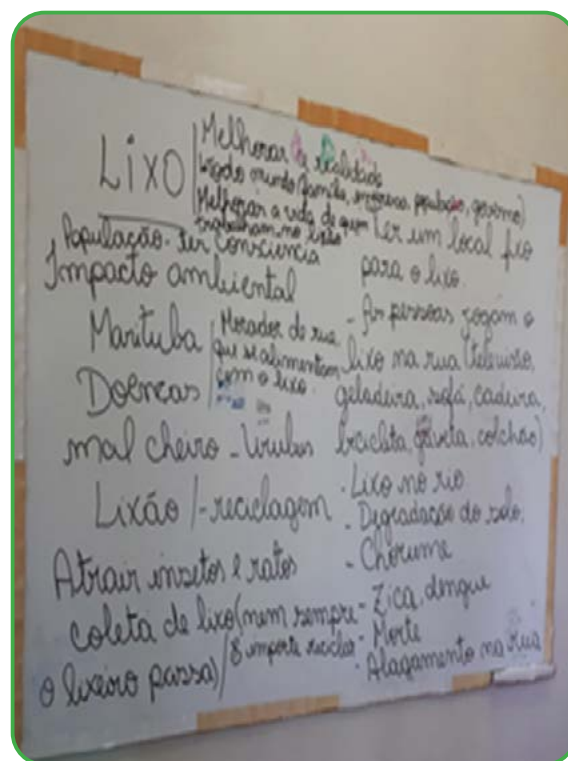 LIXO
Melhorar a realidade
todo mundo (família, empresa, população, governo)
Melhorar a vida de quem
trabalham no lixão
População. ter consciencia
Impacto ambiental
Marituba
Morador de rua
que se alimentam
com o lixo.
Doencas
mal cheiro - Urubus
Lixão / - reciclagem
Atrair insetos e ratos
coleta de lixo (nem sempre
o lixeiro passa) / importe reciclar
Ter um local fixo
para o lixo.
- As pessoas jogam o
lixo na rua (televisão,
geladeira, sofá, cadeira,
bicicleta, gaveta, colchão)
- Lixo no rio
- Degradação do solo.
- Chorume
- Zica, dengue
- Morte
- Alagamento na rua